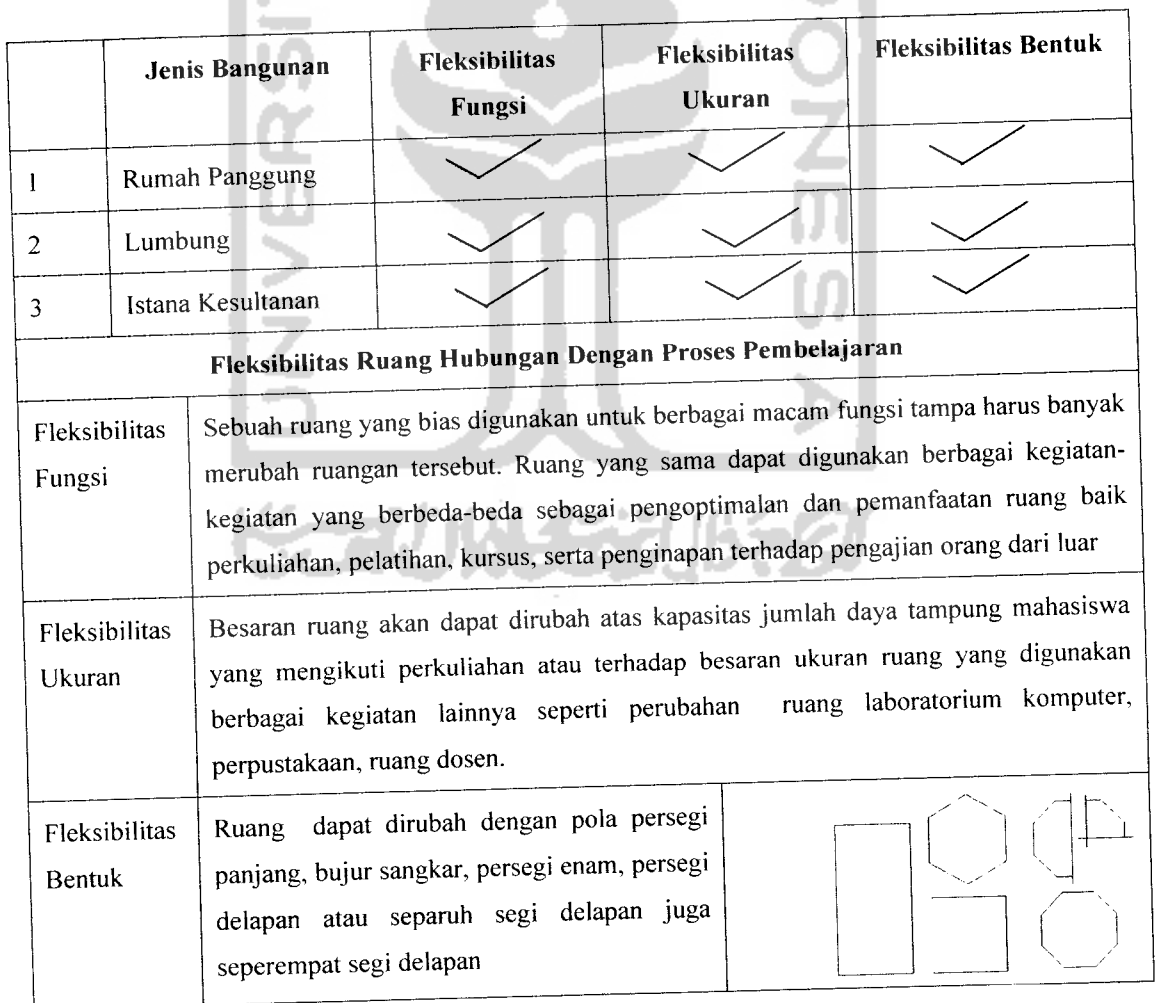 Jenis Bangunan Fleksibilitas Fungsi Fleksibilitas Ukuran Fleksibilitas Bentuk
1 Rumah Panggung
2 Lumbung
3 Istana Kesultanan
Fleksibilitas Ruang Hubungan Dengan Proses Pembelajaran
Fleksibilitas Fungsi
Sebuah ruang yang bias digunakan untuk berbagai macam fungsi tampa harus banyak
merubah ruangan tersebut. Ruang yang sama dapat digunakan berbagai kegiatan-
kegiatan yang berbeda-beda sebagai pengoptimalan dan pemanfaatan ruang baik
perkuliahan, pelatihan, kursus, serta penginapan terhadap pengajian orang dari luar
Fleksibilitas Ukuran
Besaran ruang akan dapat dirubah atas kapasitas jumlah daya tampung mahasiswa
yang mengikuti perkuliahan atau terhadap besaran ukuran ruang yang digunakan
berbagai kegiatan lainnya seperti perubahan ruang laboratorium komputer,
perpustakaan, ruang dosen.
Fleksibilitas Bentuk
Ruang dapat dirubah dengan pola persegi
panjang, bujur sangkar, persegi enam, persegi
delapan atau separuh segi delapan juga
seperempat segi delapan